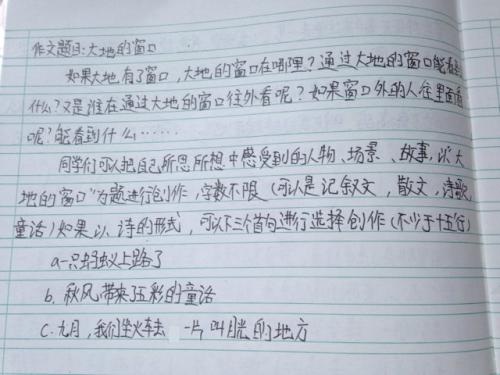 作文题目:大地的窗口
如果大地有了窗口,大地的窗口在哪里?通过大地的窗口能看到
什么?又是谁在通过大地的窗口往外看呢?如果窗口外的人往里面看
呢?能看到什么……
同学们可以把自己所思所想中感受到的人物、场景、故事,以“大
地的窗口”为题进行创作,字数不限(可以是记叙文,散文,诗歌
童话)如果以诗的形式,可以下三个首句进行选择创作(不少于十五行)
a一只蚂蚁上路了
b.秋风带来了五彩的童话
c.九月,我们坐火车去 一片叫 的地方